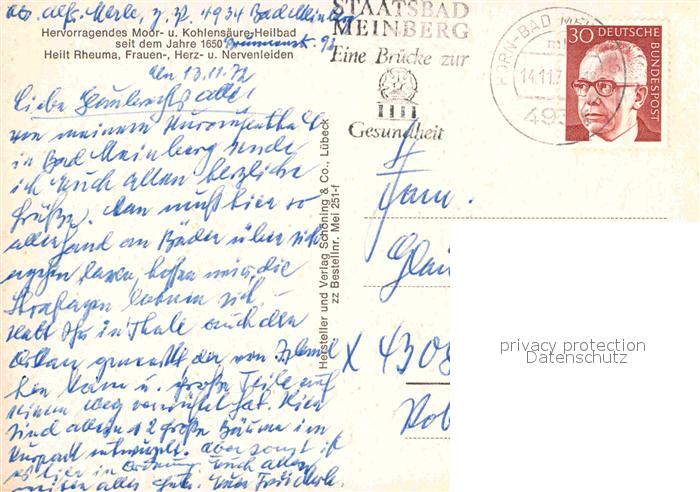 Abs. Alfr. Merle, z. Zt. 4934 Bad Meinberg
Hervorragendes Moor- u. Kohlensäure-Heilbad
seit dem Jahre 1650 Brunnenstr. 92
Heilt Rheuma, Frauen-, Herz- u. Nervenleiden
STAATSBAD
MEINBERG
Eine Brücke zur
Gesundheit
HORN-BAD MEINBERG
14.11.7
493
30 DEUTSCHE
BUNDESPOST
Den 13.11.72
Liebe alle!
von meinem Kuraufenthalt
in Bad Meinberg sende
ich Euch allen herzliche
Grüße. Man muß hier so
allerhand an Bäder über sich
ergehen lassen, hoffen wir, die
Strapazen lohnen sich.
Habt Ihr in Thale auch den
Orkan gemerkt der von
kam u. große Teile auf
seinem Weg verwüstet hat. Hier
sind allein 12 große Bäume im
Kurpark entwurzelt. Aber sonst ist
es hier in Ordnung. Euch allen
weiter alles Gute. Euer Fred Merle.
Hersteller und Verlag Schöning & Co., Lübeck
zz Bestellnr. Mei 251-f
Fam.
X 4308
privacy protection
Datenschutz